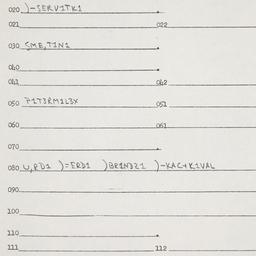 020 )-SERVITKI
021 022
030 SME,TINI
040
041 042
050 PIT3RMIL3X 051
060 061
070
080 U,RDI )=ERDI )BRINDZI )-KAC+KIVAL
090
100
110
111 112